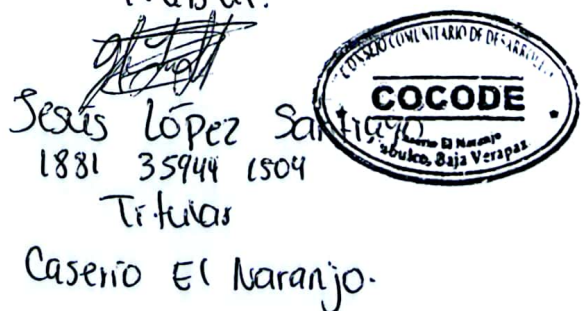 Jesús López Santiago
1881 35944 1504
Titular
Caserío El Naranjo.
CONSEJO COMUNITARIO DE DESARROLLO
COCODE
Caserío El Naranjo
Baja Verapaz